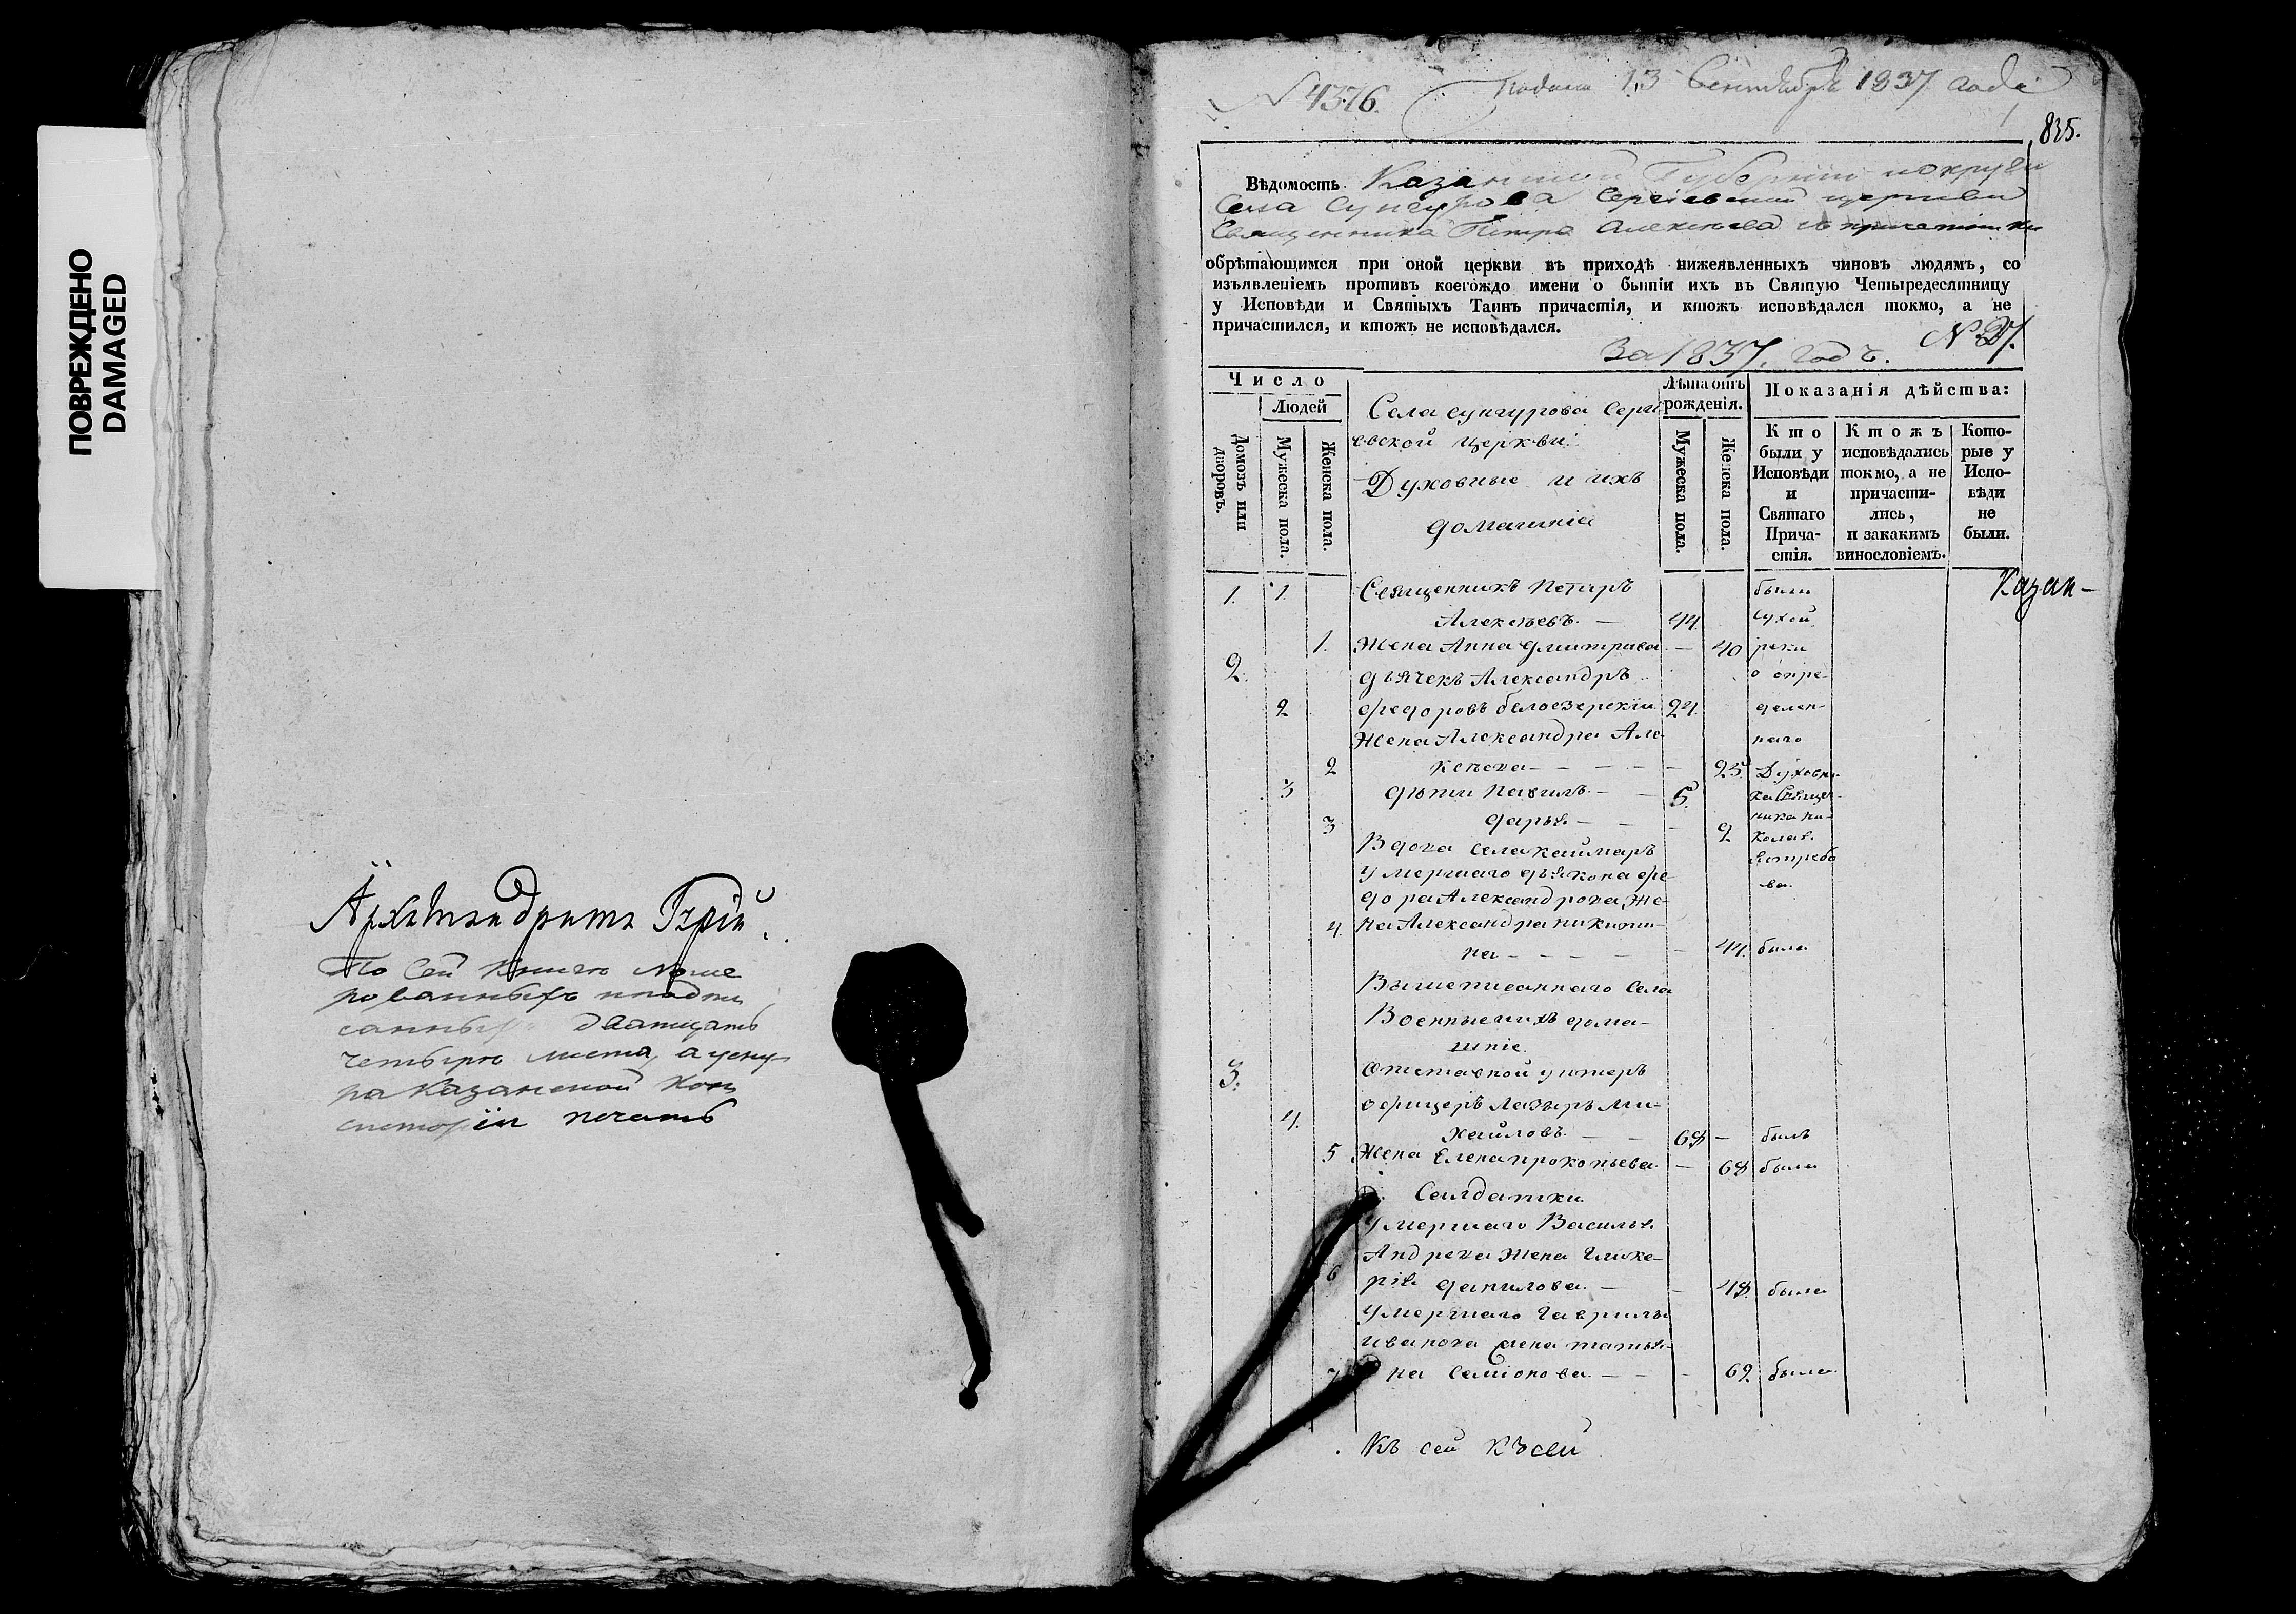 ПОВРЕЖДЕНО
DAMAGED
Архимандритъ Гурій.
По сей книгѣ номе
рованныхъ
санныхъ дватцать
четыре листа, а у сну
ра Казанской Кон
систоріи печать
N 4376. Подана 13 Сентября 1837 года
835.
Вѣдомость Казанской Губерніи и округи
Села Сунгурова Сергіевской церкви
Священника Петра Алексѣева съ причетники
обрѣтающимся при оной церкви въ приходѣ нижеявленныхъ чиновъ людямъ, со
изъявленіемъ противъ коегождо имени о бытіи ихъ въ Святую Четыредесятницу
у Исповѣди и Святыхъ Таинъ причастія, и ктожъ исповѣдался токмо, а не
причастился, и ктожъ не исповѣдался.
N 27.
За 1837. годъ.
Число
Людей
Домовъ или дворовъ.
Мужеска пола.
Женска пола.
Села сунгурова серги
евской церкви.
Духовные и ихъ
домашніе
Лѣта отъ рожденія.
Мужеска пола.
Женска пола.
Показанія дѣйства:
Кто были у Исповѣди и Святаго Прича-стія.
Ктожъ исповѣдались токмо, а не причасти-лись, и закакимъ винословіемъ.
Кото-рые у Испо-вѣди не были.
1. 1. Священникъ Петаръ были Казан-
Алексѣевъ. — 44. сухой
1. Жена Анна дмитрива — 40 реки
2. дьячекъ Александръ о опре-
2 федоровъ белоезерскіи 24. делен-
Жена Александра Але наго
2 ксѣева — — — — 25. Духовни
3 дѣти Павилъ — — 5. ка Священ-
3 дарья — — — 2 ника ни-
Вдова села каймаръ колая
умершаго дьякона фе- Ястребо
дора Александрова же- ва.
4. на Александра никити-
на — — — — — 44. была
Вышеписаннаго села
Военные ихъ дома-
шніе.
3. Отставной унтеръ
4. офицеръ Лазырь Ми-
хайловъ. — — 68 — былъ
5 Жена Елена прокопьева. — 68 была
Салдатки
умершаго Василья
Андреева Жена глике-
6 рія данилова. — — 48. была
умершаго гаврилы
иванова жена татья-
7 на Семіонова. — — — 62. была
Къ сей